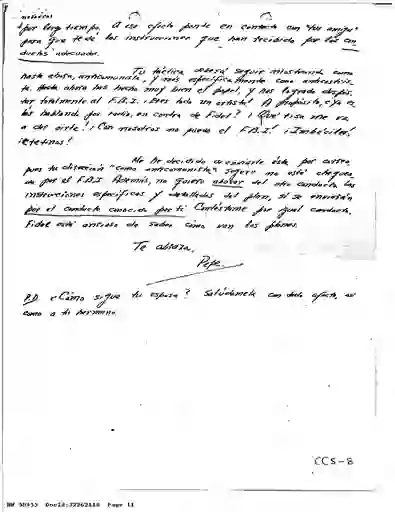 por largo tiempo. A ese efecto ponte en contacto con "tus amigos"
para que te den las instrucciones que han recibido por los con
ductos adecuados.
Tu táctica deberá seguir mostrando como
hasta ahora, anticomunista, y más específicamente como anticastris
ta. Hasta ahora has hecho muy bien el papel, y has logrado despis
tar totalmente al F.B.I. Eres todo un artista! A propósito, ¿ya es
tás hablando por radio, en contra de Fidel? ¡Qué risa me va
a dar oirte! ¡Con nosotros no puede el F.B.I.! ¡Imbéciles!
Me he decidido a enviarte ésta por correo,
pues tu dirección "como anticomunista" seguro no está chequea
da por el F.B.I. Además, no quiero abusar del otro conducto. Las
instrucciones específicas y detalladas del plan, sí se enviarán
por el conducto conocido por ti. Contéstame por igual conducto.
Fidel está ansioso de saber cómo van los planes.
Te abraza,
Pepe
P.D. ¿Cómo sigue tu esposa? Salúdamela con todo afecto, así
como a tu hermano.
CCS-8
Page 11